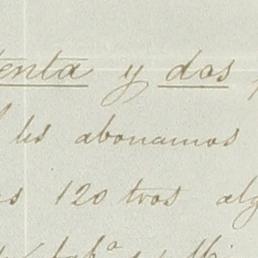 enta y dos
les abonamos
s 120 tros alg